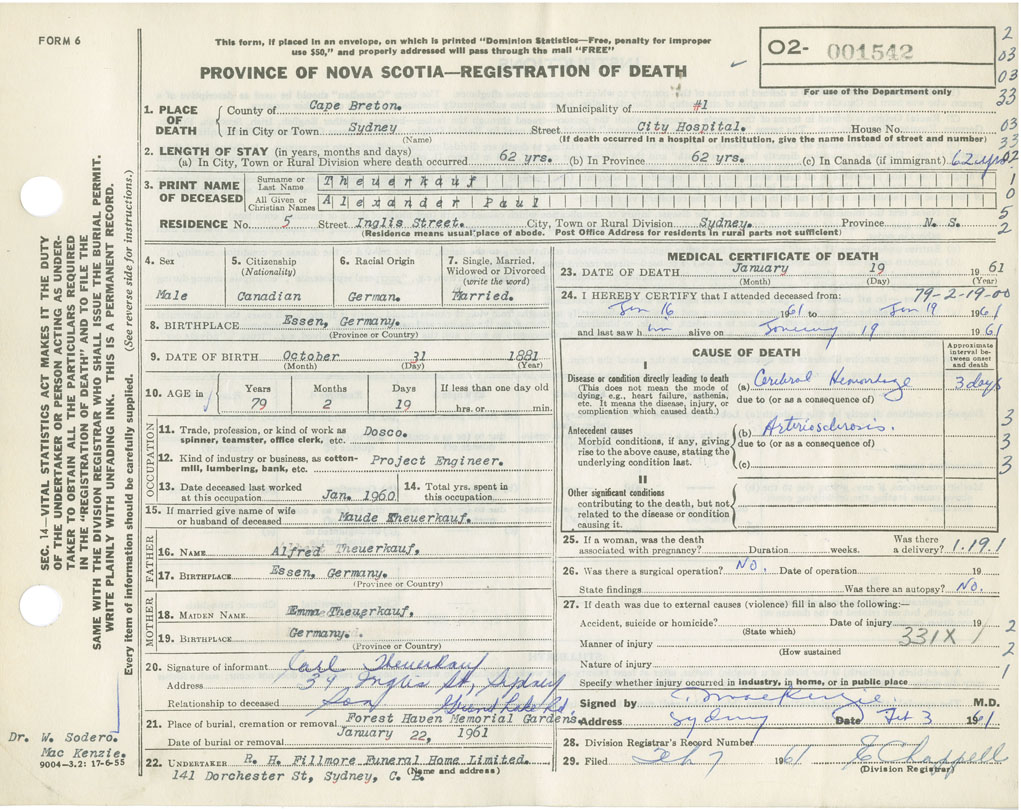 FORM 6
This form, if placed in an envelope, on which is printed "Dominion Statistics—Free, penalty for improper
use $50," and properly addressed will pass through the mail "FREE"
PROVINCE OF NOVA SCOTIA—REGISTRATION OF DEATH
O2- 001542
For use of the Department only
2
03
03
33
03
33
02
1
0
5
2
1. PLACE OF DEATH
County of Cape Breton. Municipality of #1
If in City or Town Sydney Street City Hospital. House No.
(Name) (If death occurred in a hospital or institution, give the name instead of street and number)
2. LENGTH OF STAY (in years, months and days)
(a) In City, Town or Rural Division where death occurred 62 yrs. (b) In Province 62 yrs. (c) In Canada (if immigrant) 62 yrs
3. PRINT NAME OF DECEASED
Surname or Last Name Theuerkauf
All Given or Christian Names Alexander Paul
RESIDENCE No. 5 Street Inglis Street. City, Town or Rural Division Sydney. Province N. S.
(Residence means usual place of abode. Post Office Address for residents in rural parts not sufficient)
4. Sex
Male
5. Citizenship
(Nationality)
Canadian
6. Racial Origin
German.
7. Single, Married,
Widowed or Divorced
(write the word)
Married.
8. BIRTHPLACE Essen, Germany.
(Province or Country)
9. DATE OF BIRTH October 31 1881
(Month) (Day) (Year)
10. AGE in
Years Months Days If less than one day old
79 2 19 hrs. or min.
OCCUPATION
11. Trade, profession, or kind of work as
spinner, teamster, office clerk, etc. Dosco.
12. Kind of industry or business, as cotton-
mill, lumbering, bank, etc. Project Engineer.
13. Date deceased last worked
at this occupation Jan. 1960
14. Total yrs. spent in
this occupation
15. If married give name of wife
or husband of deceased Maude Theuerkauf.
FATHER
16. NAME Alfred Theuerkauf,
17. BIRTHPLACE Essen, Germany.
(Province or Country)
MOTHER
18. MAIDEN NAME Emma Theuerkauf,
19. BIRTHPLACE Germany.
(Province or Country)
20. Signature of informant Carl Theuerkauf
Address 34 Inglis St, Sydney
Relationship to deceased Son Grand Lake Rd.
21. Place of burial, cremation or removal Forest Haven Memorial Gardens.
Date of burial or removal January 22, 1961
22. UNDERTAKER R. H. Fillmore Funeral Home Limited.
(Name and address)
141 Dorchester St, Sydney, C. B.
MEDICAL CERTIFICATE OF DEATH
23. DATE OF DEATH January 19 1961
(Month) (Day) (Year)
24. I HEREBY CERTIFY that I attended deceased from: 79-2-19-00
Jan 16 1961 to Jan 19 1961
and last saw him alive on January 19 1961
CAUSE OF DEATH
Approximate
interval be-
tween onset
and death
I
Disease or condition directly leading to death
(This does not mean the mode of
dying, e.g., heart failure, asthenia,
etc. It means the disease, injury, or
complication which caused death.)
(a) Cerebral Hemorrhage 3 days
due to (or as a consequence of)
Antecedent causes
Morbid conditions, if any, giving
rise to the above cause, stating the
underlying condition last.
(b) Arteriosclerosis.
due to (or as a consequence of)
(c)
3
3
3
II
Other significant conditions
contributing to the death, but not
related to the disease or condition
causing it.
25. If a woman, was the death Was there
associated with pregnancy? Duration weeks. a delivery? 1.19.1
26. Was there a surgical operation? No. Date of operation 19
State findings Was there an autopsy? No.
27. If death was due to external causes (violence) fill in also the following:—
Accident, suicide or homicide? Date of injury 19
(State which)
Manner of injury 331X
(How sustained
Nature of injury
Specify whether injury occurred in industry, in home, or in public place
2
2
1
Signed by MacKenzie M.D.
Address Sydney Date Feb 3 1961
28. Division Registrar's Record Number
29. Filed Feb 7 1961 E Chappell
(Division Registrar)
SEC. 14—VITAL STATISTICS ACT MAKES IT THE DUTY
OF THE UNDERTAKER OR PERSON ACTING AS UNDER-
TAKER TO OBTAIN ALL THE PARTICULARS REQUIRED
IN THE "REGISTRATION OF DEATH" AND TO FILE THE
SAME WITH THE DIVISION REGISTRAR WHO SHALL ISSUE THE BURIAL PERMIT.
WRITE PLAINLY WITH UNFADING INK. THIS IS A PERMANENT RECORD.
Every item of information should be carefully supplied. (See reverse side for instructions.)
Dr. W. Sodero.
Mac Kenzie.
9004-3.2: 17-6-55